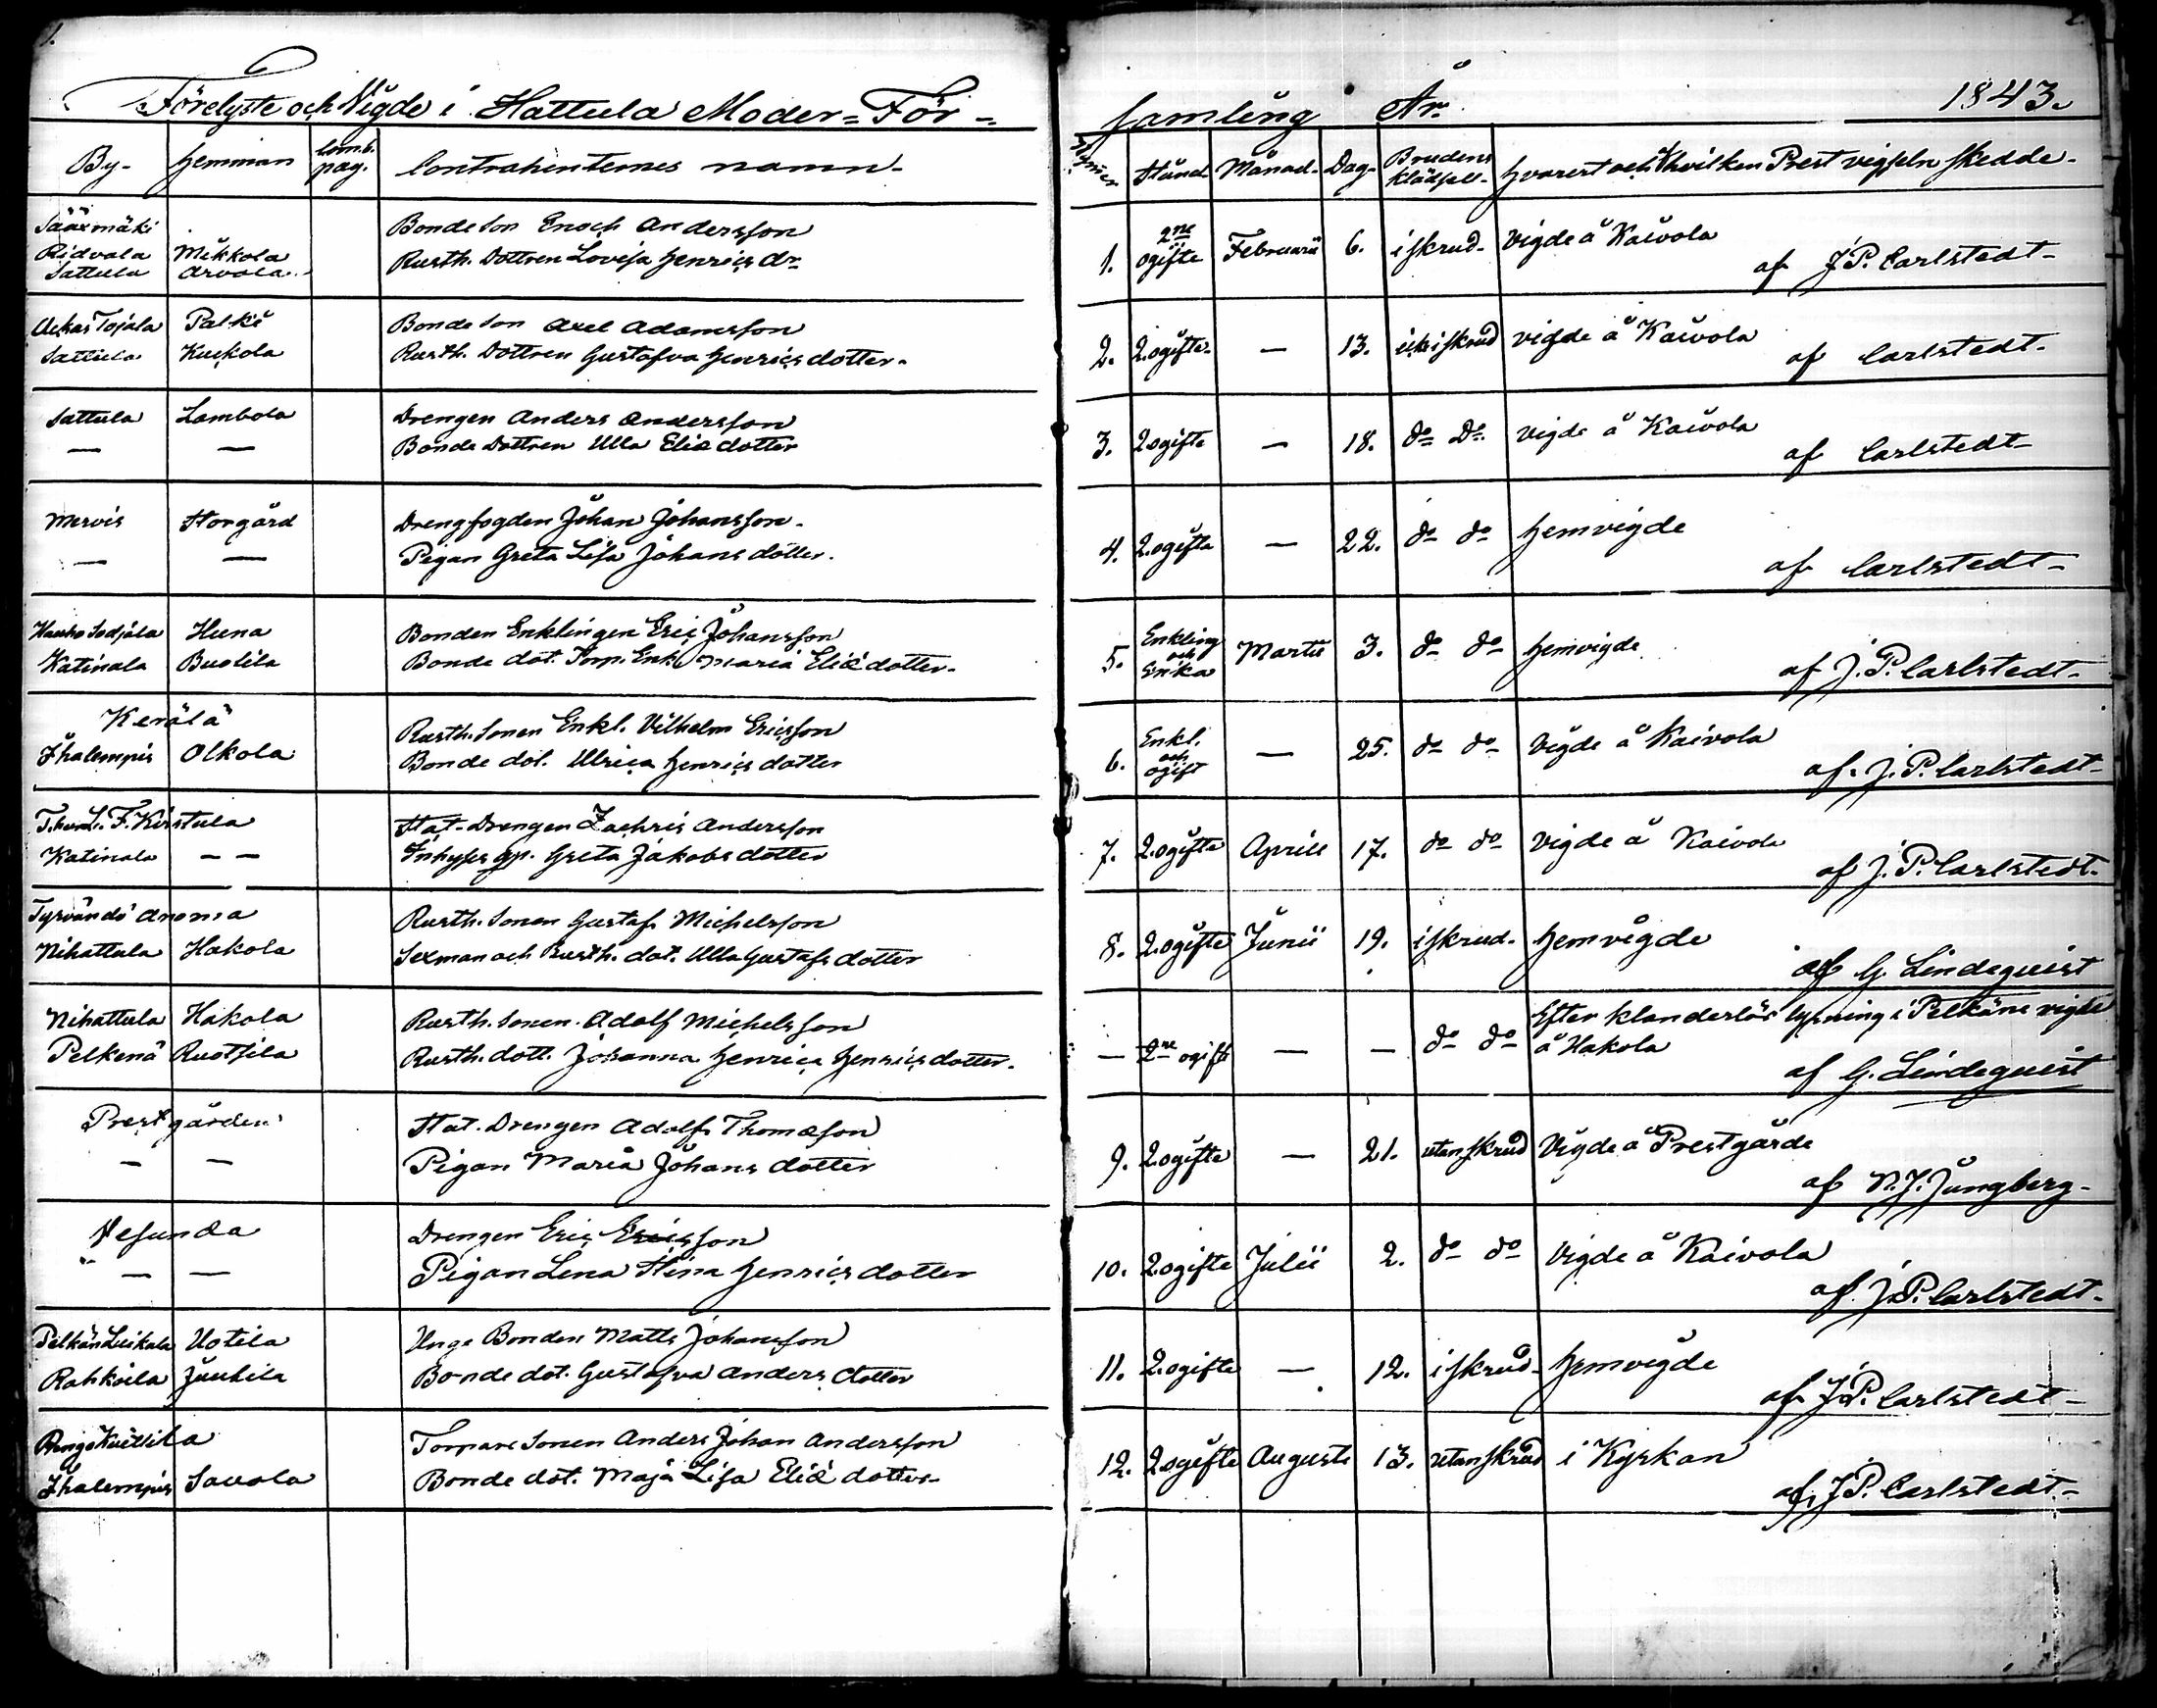 1.
Förelyste och Vigde i Hattula Moder=För-
By- Hemman Com.b. pag. Contrahenternes namn-
Sääxmäki
Ridvala Mikkola
Sattula Arvola
Bonde Son Enoch Andersson
Rusth. Dottren Lovisa Henrics dr
Tojala Palki
Sattula Kuckola
Bonde Son Axel Adamsson
Rusth. Dottren Gustafva Henrics dotter-
Sattula Lambola
— —
Drengen Anders Andersson
Bonde Dottren Ulla Eliæ dotter
Mervis Storgård
— —
Drengfogden Johan Johansson-
Pigan Greta Lisa Johans dotter.
Hauho Sodjala Huna
Katinala Buotila
Bonden Enklingen Eric Johansson
Bonde dot. Torp. Enk. Maria Eliæ dotter-
Kerälä
Ihalempis Olkola
Rusth. Sonen Enkl. Vilhelm Ericsson
Bonde dot. Ulrica Henrics dotter
F. Kirstula
Katinala — —
Stat-Drengen Zachris Andersson
Inhyses Greta Jakobs dotter
Tyrvändö Anomia
Nihattula Hakola
Rusth. Sonen Gustaf Michelsson
Sexman och Rusth. dot. Ulla Gustafs dotter
Nihattula Hakola
Pelkenä Ruotsila
Rusth. Sonen Adolf Michelsson
Rusth. dott. Johanna Henrica Henrics dotter-
Prestgården
— —
Stat. Drengen Adolf Thomæson
Pigan Maria Johans dotter
Vesunda
— —
Drengen Eric Ericsson
Pigan Lena Stina Henrics dotter
Pelkän Luikala Uotila
Rahkoila Juutila
Unge Bonden Matts Johansson
Bonde dot. Gustafva Anders dotter
Rengo Kuittila
Ihalempis Savola
Torpare Sonen Anders Johan Andersson
Bonde dot. Maja Lisa Eliæ dotter-
2.
samling År 1843.
Stånd- Månad- Dag- Brudens Klädsel- Hvarest och af hvilken Prest vigseln skedde-
1. 2ne ogifte Februarii 6. i skrud- Vigde å Kaivola
af J. P. Carlstedt-
2. 2 ogifte- — 13. ick i skrud vigde å Kaivola
af Carlstedt-
3. 2 ogifte — 18. do Do Vigde å Kaivola
af Carlstedt-
4. 2 ogifta — 22. do do Hemvigde
af Carlstedt-
5. Enkling och Enka Martii 3. do do Hemvigde
af J. P. Carlstedt-
6. Enkl. och ogift — 25. do do Vigde å Kaivola
af J. P. Carlstedt-
7. 2 ogifta Aprill 17. do do Vigde å Kaivola
af J. P. Carlstedt-
8. 2 ogifte Junii 19. i skrud- Hemvigde
af G. Lindequist
— 2ne ogift — — do do Efter klanderlös lysning i Pelkäne vigde
å Hakola
af G. Lindequist
9. 2 ogifte — 21. utan skrud Vigde å Prestgårde
af N. J. Ljungberg-
10. 2 ogifte Julii 2. do do Vigde å Kaivola
af J. P. Carlstedt-
11. 2 ogifte — 12. i skrud- Hemvigde
af J. P. Carlstedt-
12. 2 ogifte Augusti 13. utan skrud i Kyrkan
af J. P. Carlstedt-